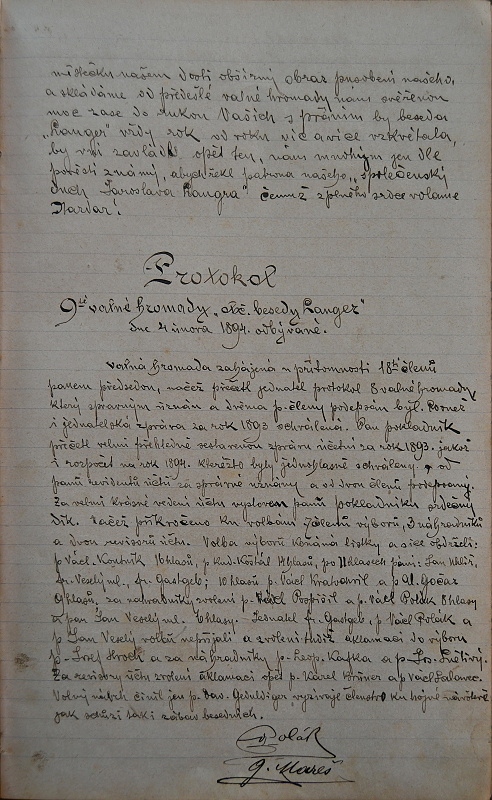 našem dosti obšírný obraz působení našeho,
a skládáme od předešlé valné hromady námi svěřenou
moc zase do rukou Vašich s přáním by beseda
„Langer" vždy rok od roku víc a více vzkvétala,
by v ní zavládl opět ten, nám mnohým jen dle
pověsti známý, abych řekl patrona našeho, „společenský
duch Jaroslava Langra" čemuž z plného srdce voláme
Nazdar!
Protokol
9té valné hromady „obč. besedy Langer"
dne 4 února 1894. odbývané.
Valná hromada zahájená u přítomnosti 18ti členů
panem předsedou, načež přečetl jednatel protokol 8 valné hromady,
který správným uznán a dvěma p. členy podepsán byl. Rovněž
i jednatelská zpráva za rok 1893 schválena. Pan pokladník
přečetl velmi přehledně sestavenou zprávu účetní za rok 1893. jakož
i rozpočet na rok 1894. kteréžto byly jednohlasně schváleny, od
panů revidentů účtů za správné uznány a od dvou členů podepsány.
Za velmi krásné vedení účtu vysloven panu pokladníku srdečný
dík. Načež přikročeno ku volbám 7 členů výboru, 3 náhradníků
a dvou revisorů účtu. Volba výboru konána lístky a sice obdrželi:
p. Václ. Koutník 16 hlasů, p. Rud. Košťál 14 hlasů, po 11 hlasech páni: Jan
fr. Veselý ml., fr. Gastgeb; 10 hlasů p. Václ. Kratochvíl a p. A. Gočár
9 hlasů. za náhradníky zvoleni p. Václ. Pospíšil a p. Václ. Polák 8 hlasy
a pan Jan Veselý ml. 6 hlasy. Jednatel fr. Gastgeb, p. Václ. Polák a
p. Jan Veselý volbu nepřijali a zvoleni tudíž aklamací do výboru
p. Josef Hroch a za náhradníky p. Leop. Kafka a p.
Za revisory účtu zvoleni aklamací opět p. Karel Brüner a p. Václ.
Volný návrh činil jen p. Dav. Geduldiger, vyzývaje členstvo ku hojné návštěvě
jak schůzí tak i zábav besedních.
Polák
J. Mareš